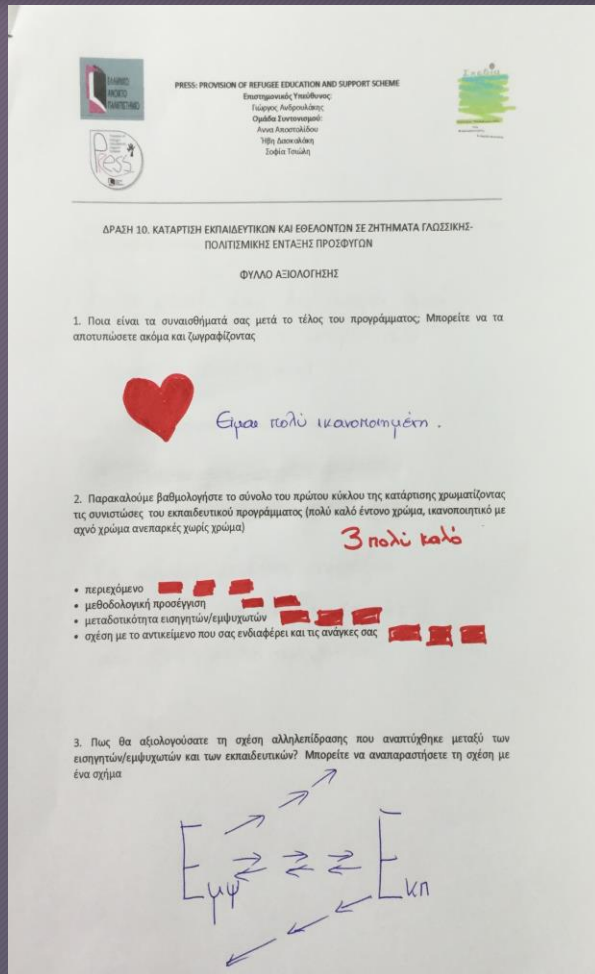 ΕΛΛΗΝΙΚΟ
ΑΝΟΙΚΤΟ
ΠΑΝΕΠΙΣΤΗΜΙΟ
Press
Σχεδία
PRESS: PROVISION OF REFUGEE EDUCATION AND SUPPORT SCHEME
Επιστημονικός Υπεύθυνος:
Γιώργος Ανδρουλάκης
Ομάδα Συντονισμού:
Άννα Αποστολίδου
Ήβη Δασκαλάκη
Σοφία Τσιώλη
ΔΡΑΣΗ 10. ΚΑΤΑΡΤΙΣΗ ΕΚΠΑΙΔΕΥΤΙΚΩΝ ΚΑΙ ΕΘΕΛΟΝΤΩΝ ΣΕ ΖΗΤΗΜΑΤΑ ΓΛΩΣΣΙΚΗΣ-
ΠΟΛΙΤΙΣΜΙΚΗΣ ΕΝΤΑΞΗΣ ΠΡΟΣΦΥΓΩΝ
ΦΥΛΛΟ ΑΞΙΟΛΟΓΗΣΗΣ
1. Ποια είναι τα συναισθήματά σας μετά το τέλος του προγράμματος; Μπορείτε να τα
αποτυπώσετε ακόμα και ζωγραφίζοντας
Είμαι πολύ ικανοποιημένη.
2. Παρακαλούμε βαθμολογήστε το σύνολο του πρώτου κύκλου της κατάρτισης χρωματίζοντας
τις συνιστώσες του εκπαιδευτικού προγράμματος (πολύ καλό έντονο χρώμα, ικανοποιητικό με
αχνό χρώμα ανεπαρκές χωρίς χρώμα)
3 πολύ καλό
• περιεχόμενο
• μεθοδολογική προσέγγιση
• μεταδοτικότητα εισηγητών/εμψυχωτών
• σχέση με το αντικείμενο που σας ενδιαφέρει και τις ανάγκες σας
3. Πως θα αξιολογούσατε τη σχέση αλληλεπίδρασης που αναπτύχθηκε μεταξύ των
εισηγητών/εμψυχωτών και των εκπαιδευτικών? Μπορείτε να αναπαραστήσετε τη σχέση με
ένα σχήμα
Εμψ Εκπ